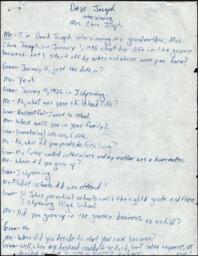 Dave Joseph
interviewing
Mrs. Chris Joseph
Me- I'm David Joseph interviewing my grandmother, Mrs.
Chris Joseph, on January 1, 1995 about her life in the grocery
business. Let's start off by when and where were you born?
Gram- January 4, just the date?
Me- Yeah
Gram- January 4, 1926 in Ishpeming.
Me- Ah, what was your childhood like?
Gram- Uneventful- I went to school.
Me- Where were you in your family?
Gram- (wondering)
Me- Ah, what did your parents do for a living?
Gram- My father and my mother was a homemaker.
Me- Where did you grow up?
Gram- Ishpeming.
Me- What schools did you attend?
Gram- St. John's parochial schools until the eighth grade and then
Ishpeming High School.
Me- Did you grow up in the grocery business as a child?
Gram- No
Me- When did you decide to start your own business?
Gram- Well, when my husband